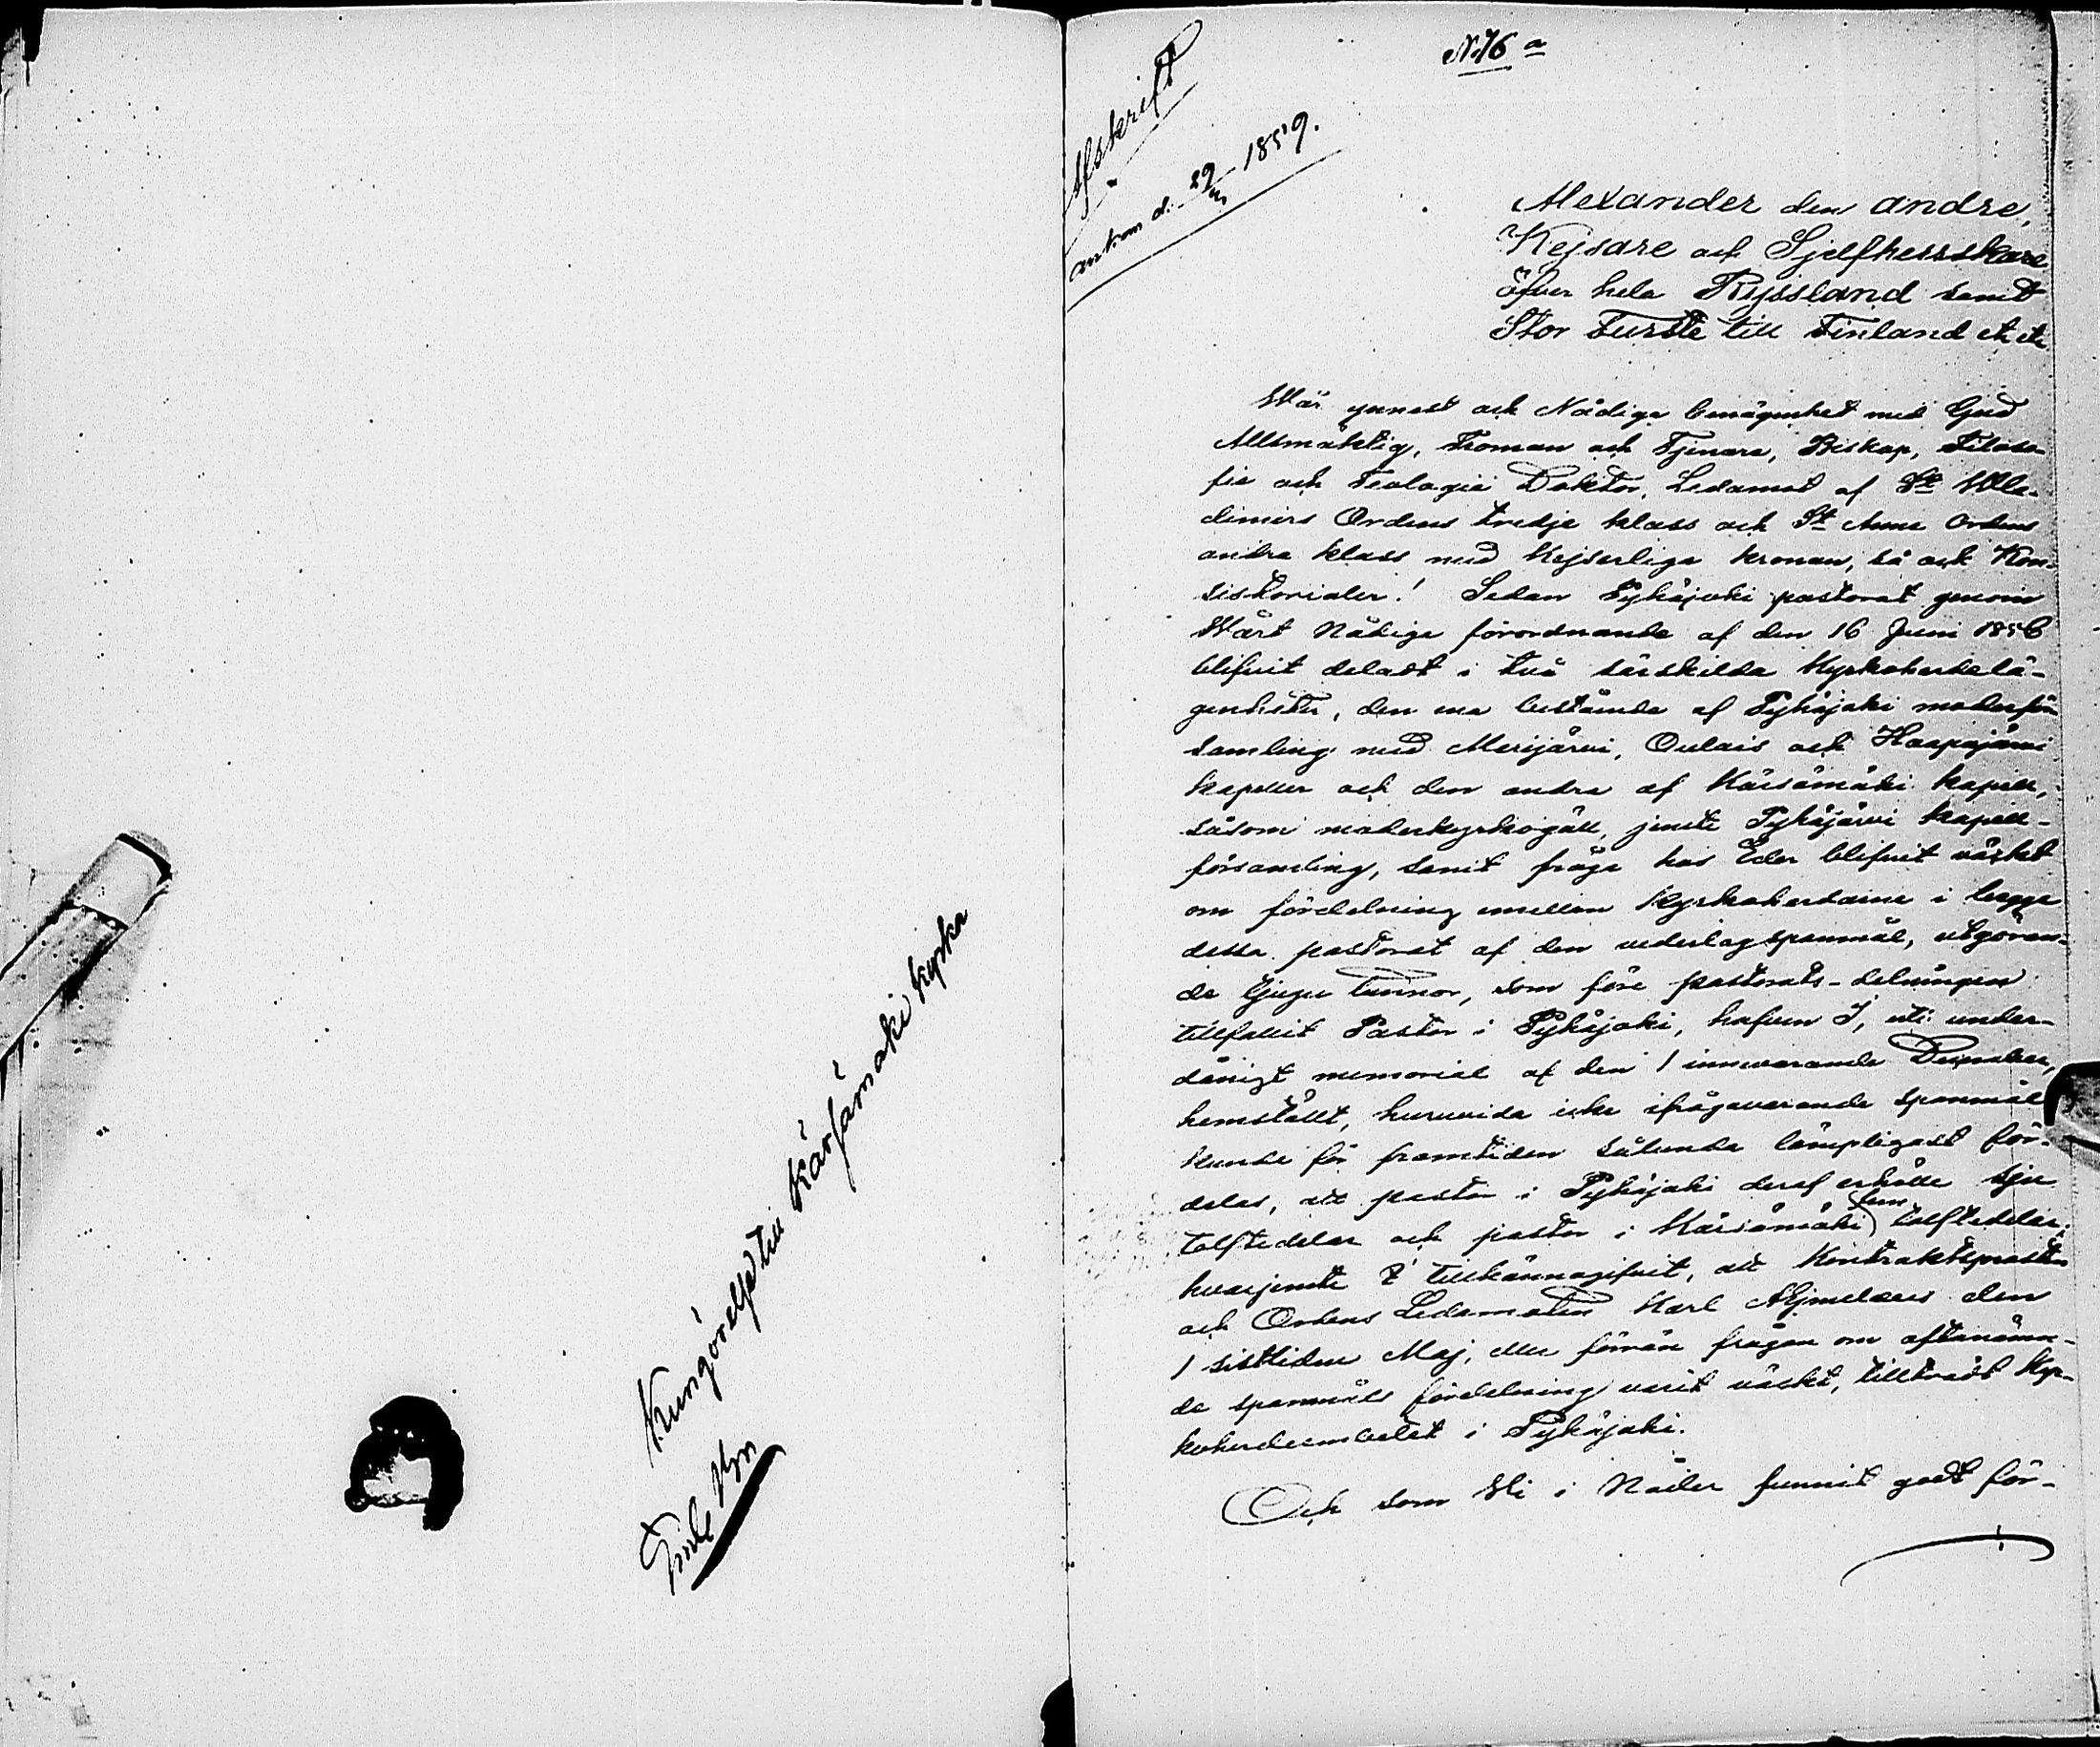 Kungörelse till Kärsämäki kyrka
N:76 a
Afskrift
ankom d. 1859.
Alexander den andre,
Kejsare och Sjelfherrskare
öfver hela Ryssland samt
Stor Furste till Finland etc etc
Wår ynnest och Nådiga benägenhet med Gud
Allsmäktig, Troman och Tjenare, Biskop, Filoso-
fie och Teologie Doktor, Ledamot af St Wla-
dimirs Ordens tredje klass och St Anna Ordens
andra klass med Kejserliga kronan, så ock Kon-
sistorialer! Sedan Pyhäjoki pastorat genom
Wårt Nådiga förordnande af den 16 Juni 1856
blifvit deladt i två särskilda Kyrkoherdelä-
genheter, den ena bestående af Pyhäjoki moderför-
samling med Merijärvi, Oulais och Haapajärvi
kapeller och den andra af Kärsämäki kapell,
såsom moderkyrkogäll, jemte Pyhäjärvi kapell-
församling, samt fråga hos Eder blifvit väckt
om fördelning emellan Kyrkoherdarne i begge
dessa pastorat af den vederlagspanmål, utgöran-
de tjugu tunnor, som före pastorats-delningen
tillfallit Pastor i Pyhäjoki, hafven I, uti under-
dånigt memorial af den 1 innevarande December,
hemställt, huruvida icke ifrågavarande spanmål
kunde för framtiden sålunda lämpligast för-
delas, att pastor i Pyhäjoki deraf erhölle sju
tolftedelar och pastor i Kärsämäki fem tolftedelar,
hvarjemte I tillkännagifvit, att Kontraktsprosten
och Ordens Ledamoten Karl Ajmelæus den
1 sistliden Maj, eller förrän frågan om oftanämn-
de spanmåls fördelning varit väckt, tillträdt Kyr-
koherdeembetet i Pyhäjoki.
Och som Vi i Nåder funnit godt för-